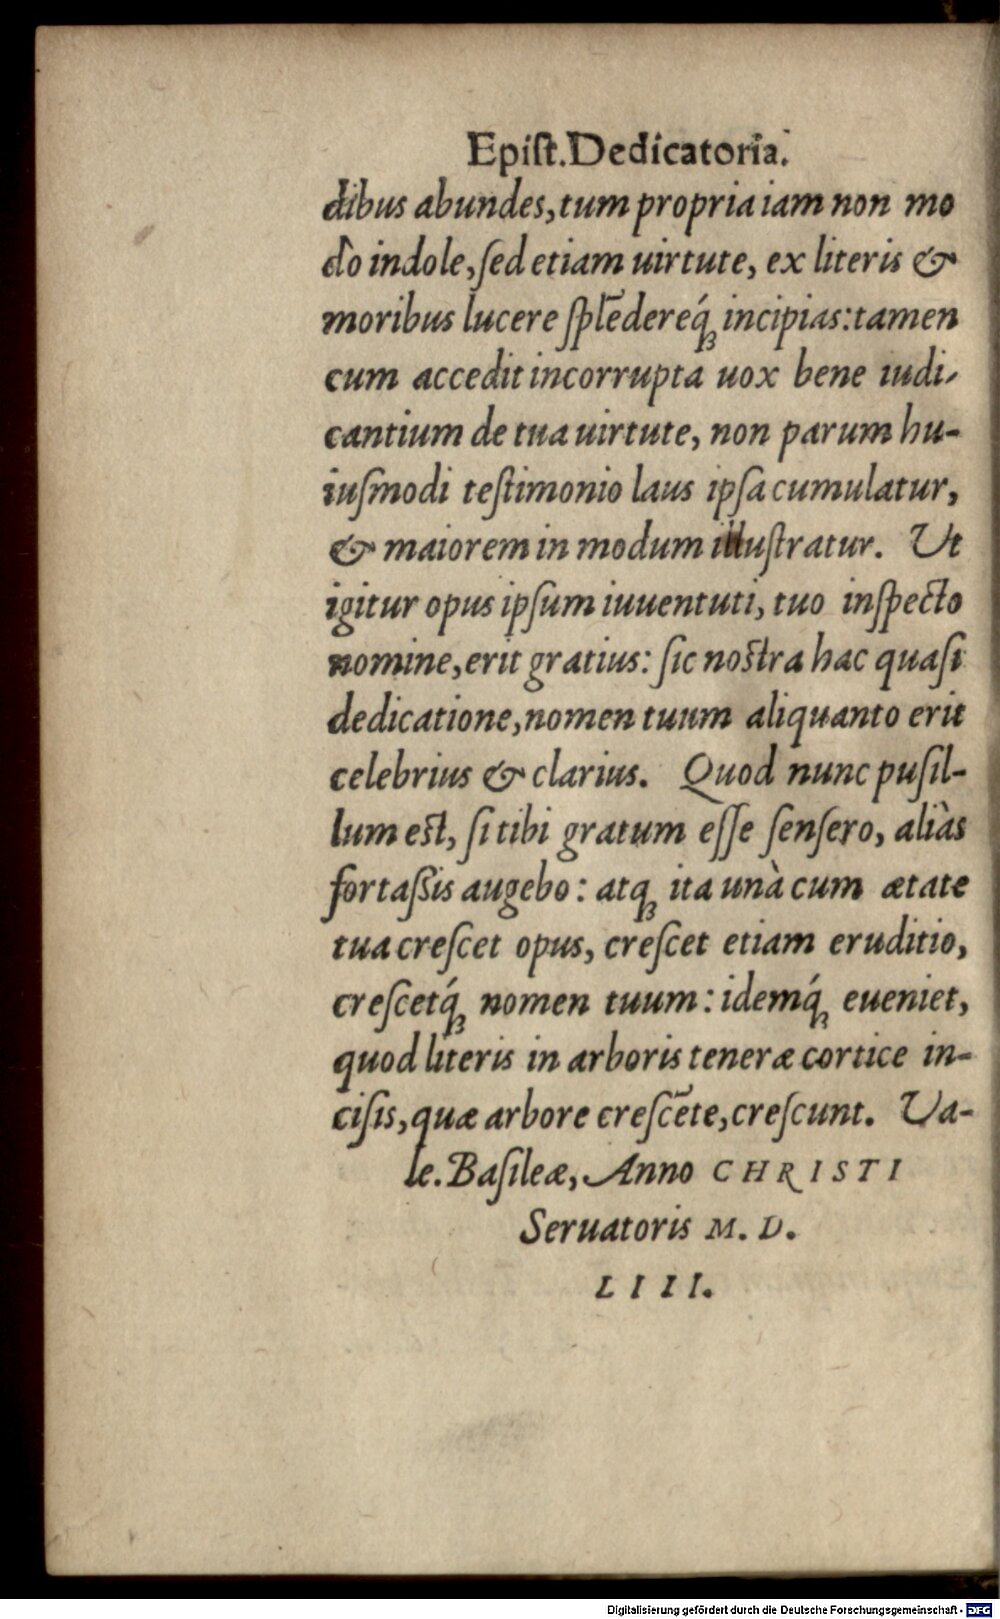 Epiſt. Dedicatoria.
dibus abundes, tum propria iam non mo
do indole, ſed etiam uirtute, ex literis &
moribus lucere ſplẽdereq́ꝫ incipias: tamen
cum accedit incorrupta uox bene iudi-
cantium de tua uirtute, non parum hu-
iuſmodi teſtimonio laus ipſa cumulatur,
& maiorem in modum illuſtratur. Ut
igitur opus ipſum iuuentuti, tuo inſpecto
nomine, erit gratius: ſic noſtra hac quaſi
dedicatione, nomen tuum aliquanto erit
celebrius & clarius. Quod nunc puſil-
lum eſt, ſi tibi gratum eſſe ſenſero, aliàs
fortaßis augebo: atqꝫ ita unà cum ætate
tua creſcet opus, creſcet etiam eruditio,
creſcetq́ꝫ nomen tuum: idemq́ꝫ eueniet,
quod literis in arboris teneræ cortice in-
ciſis, quæ arbore creſcẽte, creſcunt. Ua-
le. Baſileæ, Anno CHRISTI
Seruatoris M. D.
LIII.
Digitalisierung gefördert durch die Deutsche Forschungsgemeinschaft - DFG